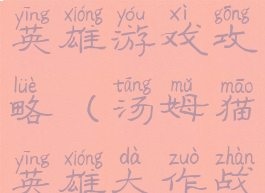 yīng xióng yóu xì gōng
英雄游戏攻
lüè tāng mǔ māo
略（汤姆猫
yīng xióng dà zuò zhàn
英雄大作战